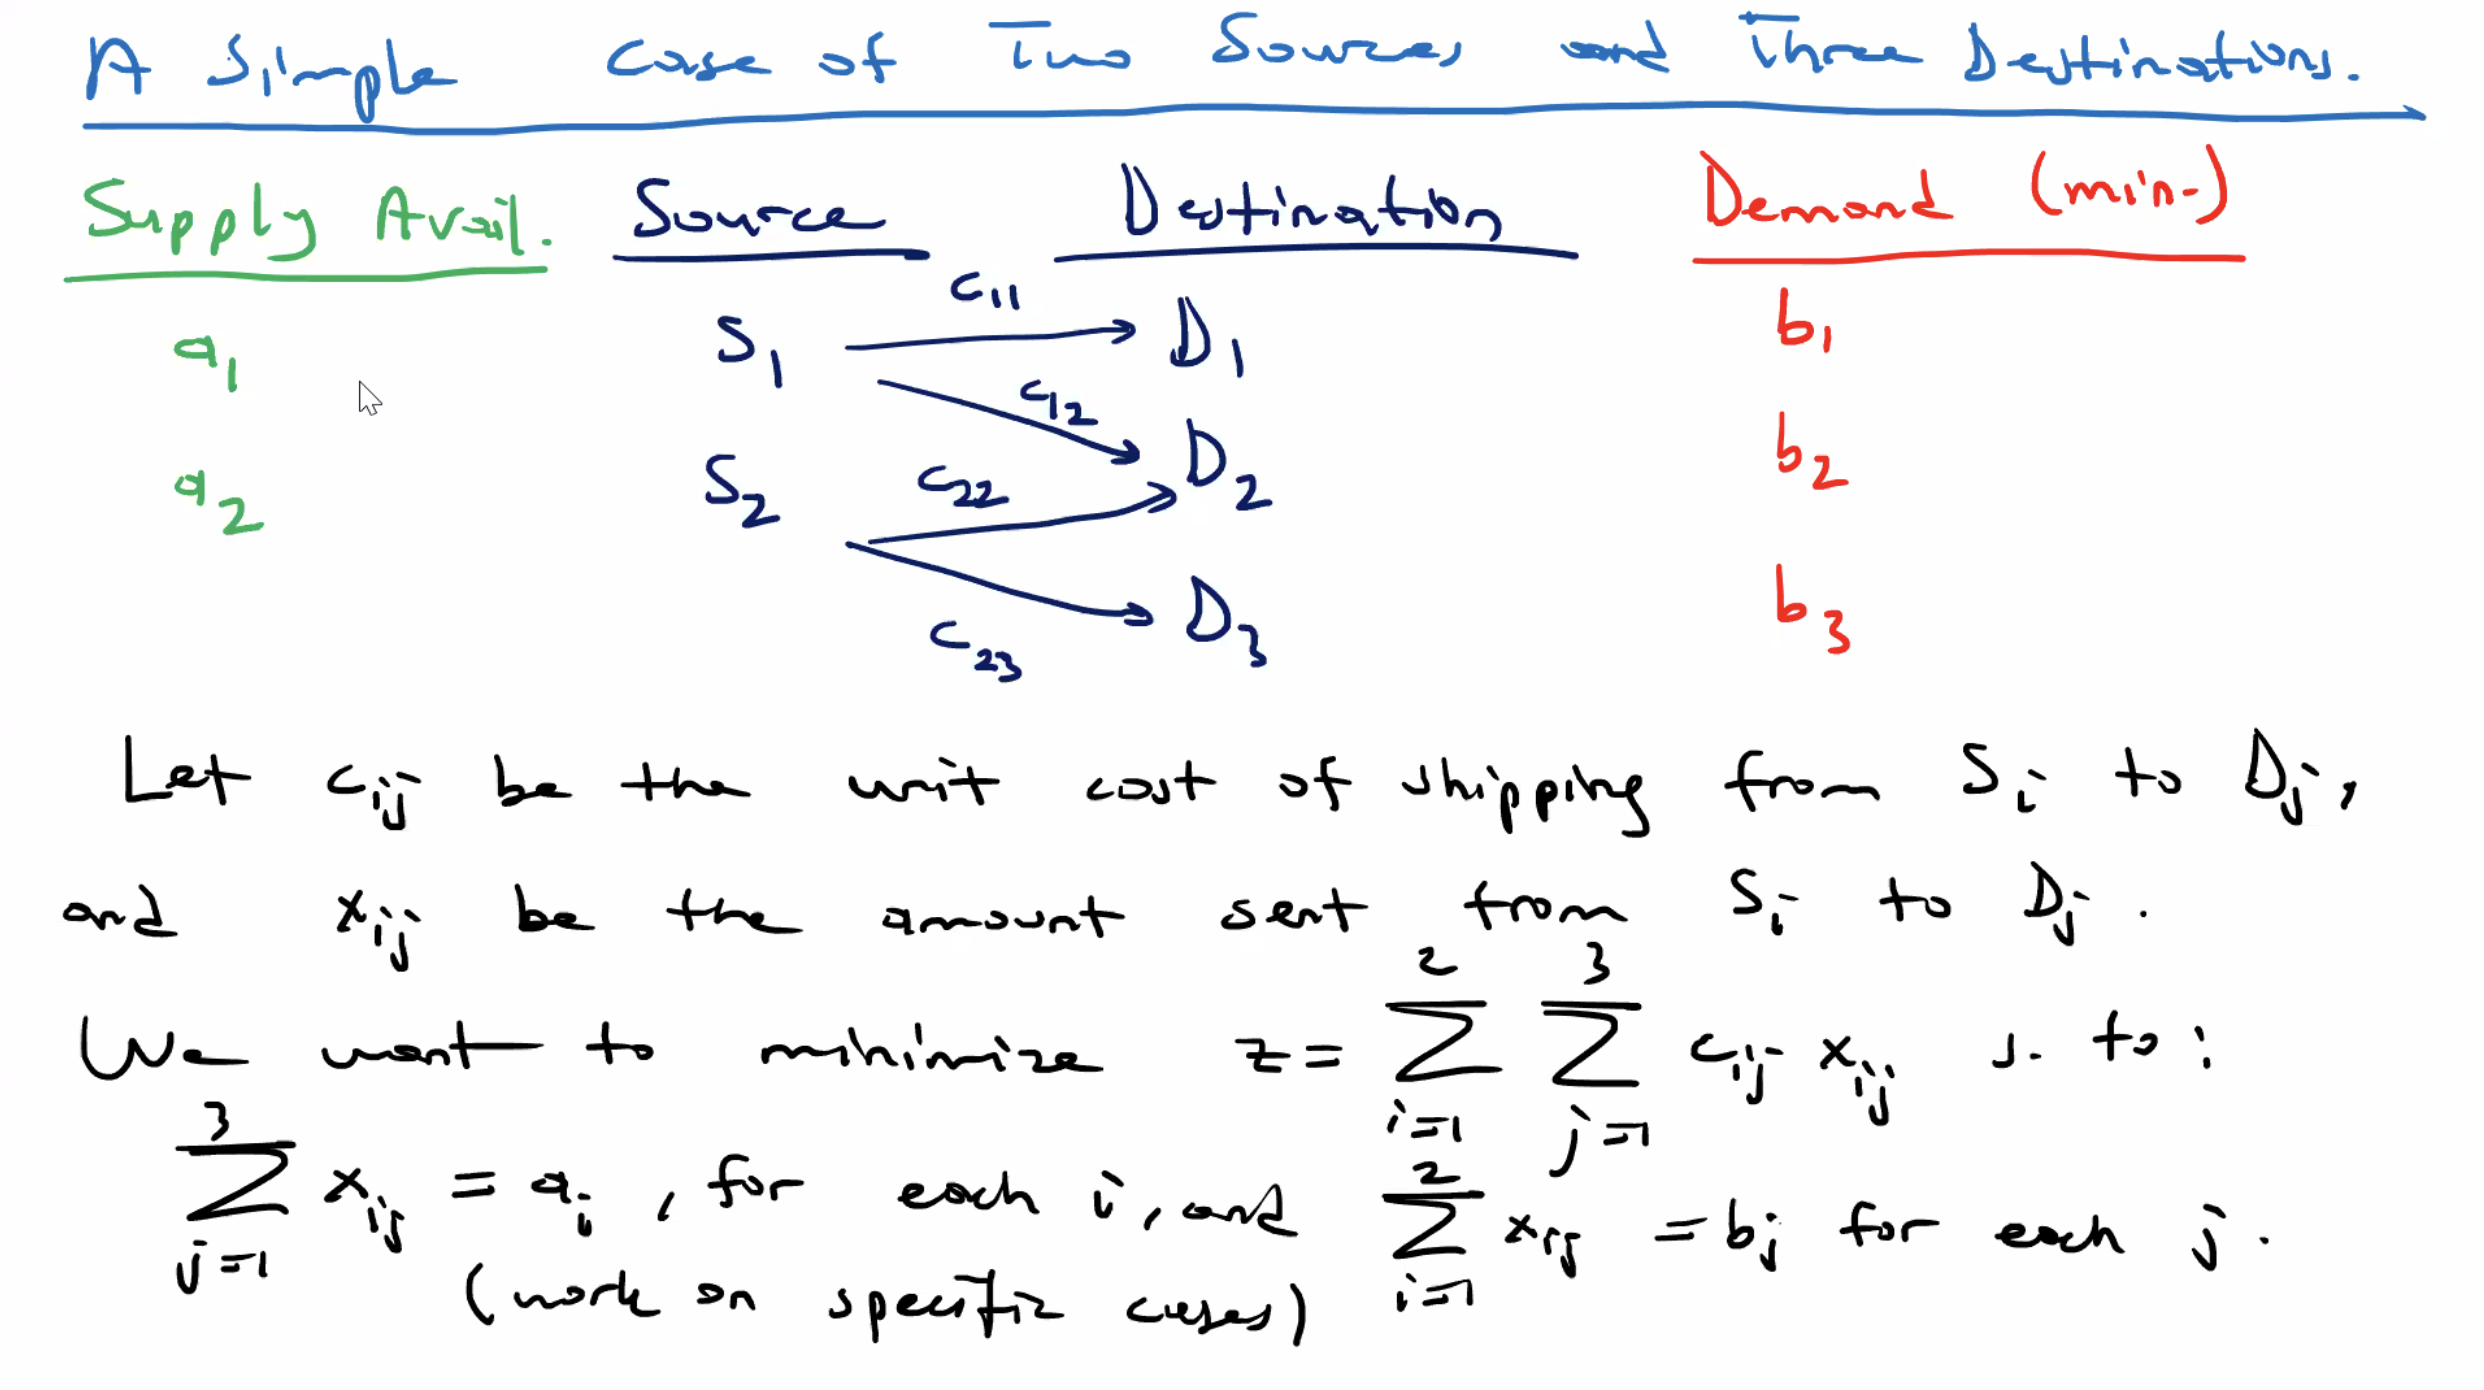 A Simple Case of Two Sources and Three Destinations.
Supply Avail. Source Destination Demand (min.)
c₁₁
a₁ S₁ D₁ b₁
c₁₂
a₂ S₂ c₂₂ D₂ b₂
c₂₃ D₃ b₃
Let cᵢⱼ be the unit cost of shipping from Sᵢ to Dⱼ,
and xᵢⱼ be the amount sent from Sᵢ to Dⱼ.
We want to minimize z = ∑_{i=1}^{2} ∑_{j=1}^{3} cᵢⱼ xᵢⱼ s. to:
∑_{j=1}^{3} xᵢⱼ = aᵢ, for each i, and ∑_{i=1}^{2} xᵢⱼ = bⱼ for each j.
(work on specific cases)